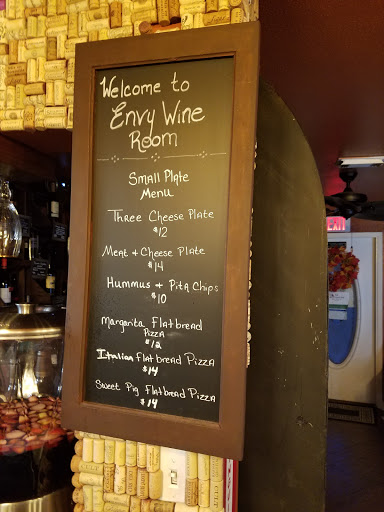 Welcome to
Envy Wine
Room
Small Plate
Menu
Three Cheese Plate
$12
Meat + Cheese Plate
$14
Hummus + Pita Chips
$10
Margarita Flatbread
Pizza
$12
Italian Flatbread Pizza
$14
Sweet Pig Flatbread Pizza
$14
EXIT